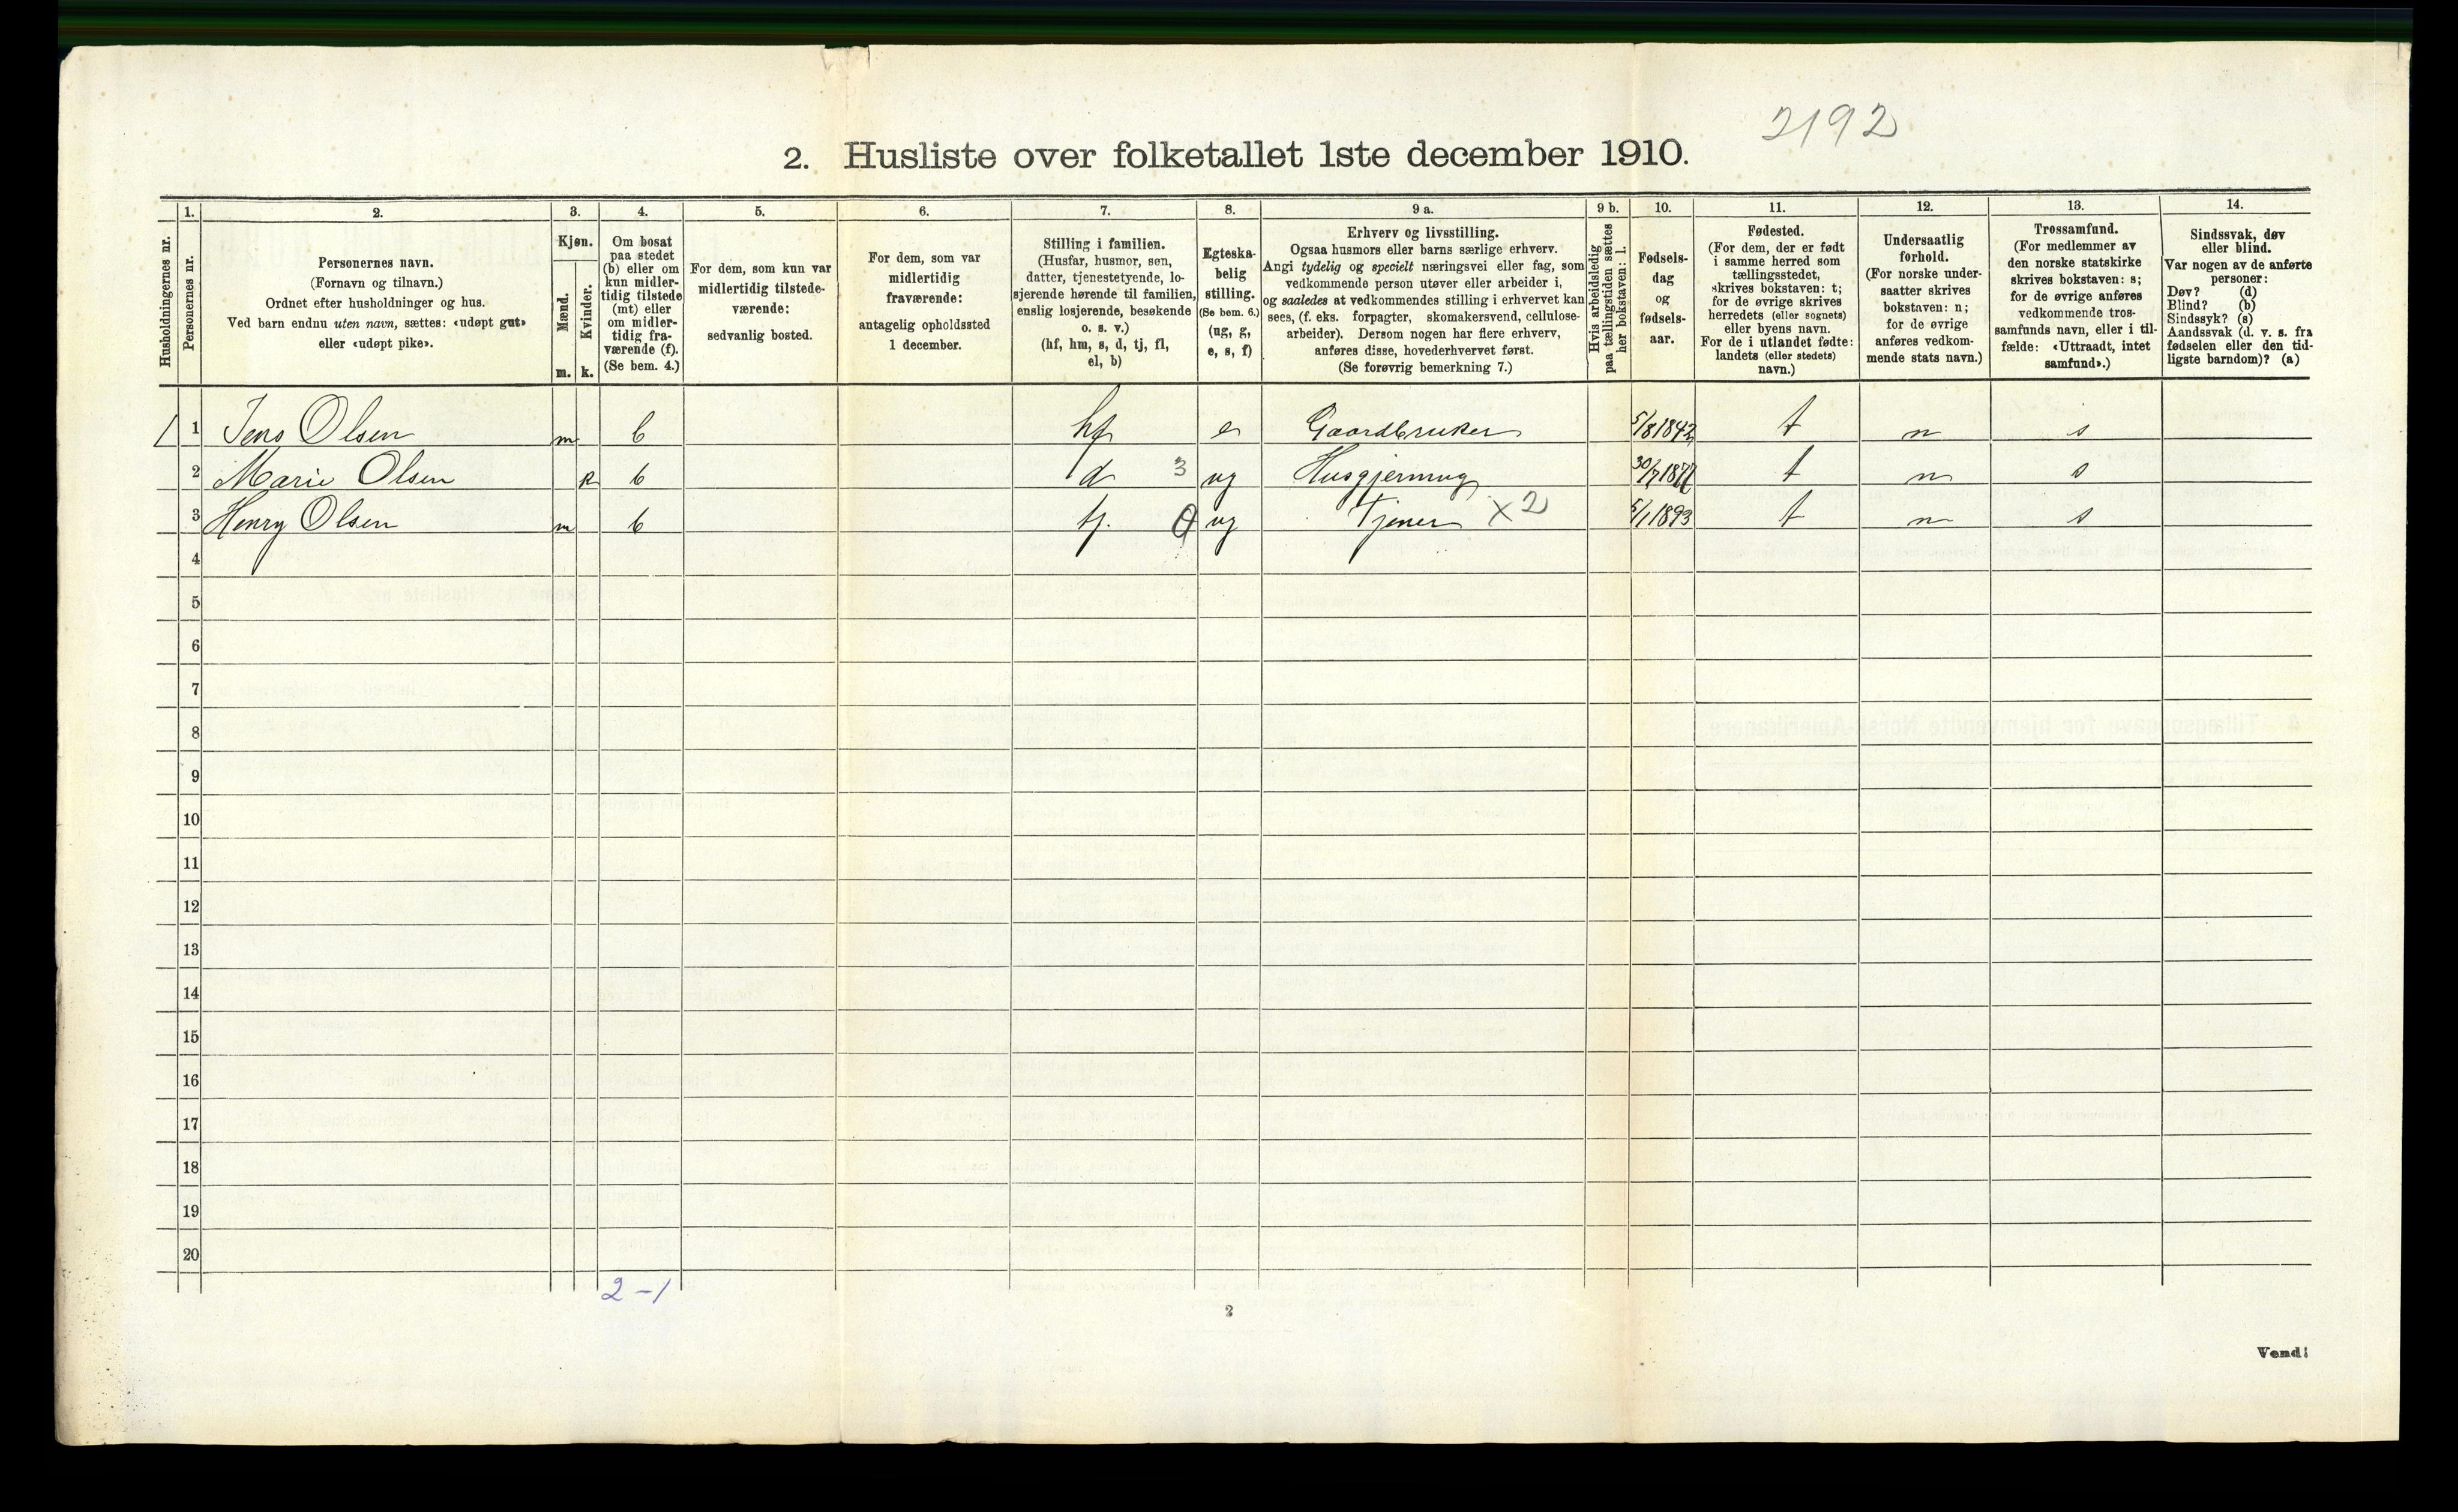 2192
2. Husliste over folketallet 1ste december 1910.
Husholdningernes nr.
1.
Personernes nr.
2.
Personernes navn.
(Fornavn og tilnavn.)
Ordnet efter husholdninger og hus.
Ved barn endnu uten navn, sættes: «udøpt gut»
eller «udøpt pike».
3.
Kjøn.
Mænd.
Kvinder.
m. k.
4.
Om bosat
paa stedet
(b) eller om
kun midler-
tidig tilstede
(mt) eller
om midler-
tidig fra-
værende (f).
(Se bem. 4.)
5.
For dem, som kun var
midlertidig tilstede-
værende:
sedvanlig bosted.
6.
For dem, som var
midlertidig
fraværende:
antagelig opholdssted
1 december.
7.
Stilling i familien.
(Husfar, husmor, søn,
datter, tjenestetyende, lo-
sjerende hørende til familien,
enslig losjerende, besøkende
o. s. v.)
(hf, hm, s, d, tj, fl,
el, b)
8.
Egteska-
belig
stilling.
(Se bem. 6.)
(ug, g,
e, s, f)
9 a.
Erhverv og livsstilling.
Ogsaa husmors eller barns særlige erhverv.
Angi tydelig og specielt næringsvei eller fag, som
vedkommende person utøver eller arbeider i,
og saaledes at vedkommendes stilling i erhvervet kan
sees, (f. eks. forpagter, skomakersvend, cellulose-
arbeider). Dersom nogen har flere erhverv,
anføres disse, hovederhvervet først.
(Se forøvrig bemerkning 7.)
9 b.
Hvis arbeidsledig
paa tællingstiden sættes
her bokstaven: l.
10.
Fødsels-
dag
og
fødsels-
aar.
11.
Fødested.
(For dem, der er født
i samme herred som
tællingsstedet,
skrives bokstaven: t;
for de øvrige skrives
herredets (eller sognets)
eller byens navn.
For de i utlandet fødte:
landets (eller stedets)
navn.)
12.
Undersaatlig
forhold.
(For norske under-
saatter skrives
bokstaven: n;
for de øvrige
anføres vedkom-
mende stats navn.)
13.
Trossamfund.
(For medlemmer av
den norske statskirke
skrives bokstaven: s;
for de øvrige anføres
vedkommende tros-
samfunds navn, eller i til-
fælde: «Uttraadt, intet
samfund».)
14.
Sindssvak, døv
eller blind.
Var nogen av de anførte
personer:
Døv? (d)
Blind? (b)
Sindssyk? (s)
Aandssvak (d. v. s. fra
fødselen eller den tid-
ligste barndom)? (a)
1 1 Jens Olsen m b hf e Gaardbruker 5/8 1842 t n s
2 Marie Olsen k b d 3 ug Husgjerning 30/7 t n s
3 Henry Olsen m b tj. ug Tjener x 2 5/1 1893 t n s
4
5
6
7
8
9
10
11
12
13
14
15
16
17
18
19
20
2-1
2
Vend!